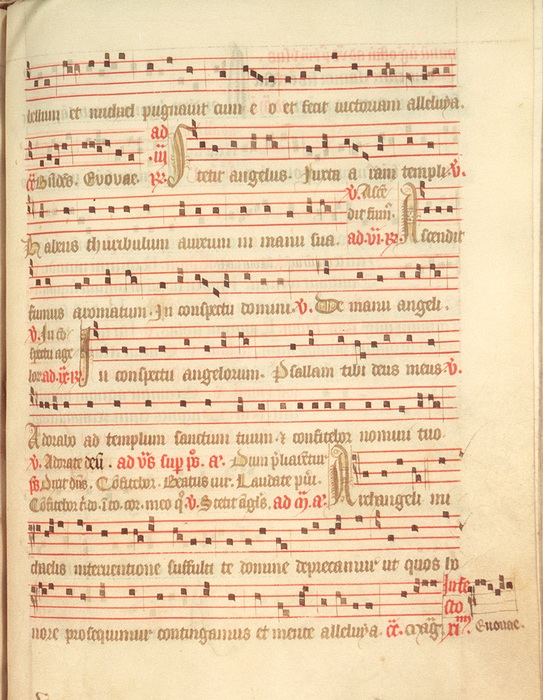 tellum et michael pugnavit cum e o et fecit victoriam alleluya.
ad
iij
Evovae. Stetit angelus. Iuxta aram templi. v.
v. Asce
dit fum.
Habens thuribulum aureum in manu sua. ad vi. Ascendit
fumus aromatum. In conspectu domini. v. De manu angeli.
v. In co
spectu age
lor ad ix. In conspectu angelorum. Psallam tibi deus meus. v.
Adorabo ad templum sanctum tuum. et confitebor nomini tuo.
v. Adorate deu. ad vs sup ps. a. Dum pliaretur
ps. Dixit dns. Cofitebor. Beatus vir. Laudate pui.
Cofitebor t. do. i to. cor. meo q. v. Stetit agls. ad m. a. Archangeli mi
chaelis interventione suffulti te domine deprecamur ut quos ho
nore prosequimur contingamus et mente alleluya. Evovae.